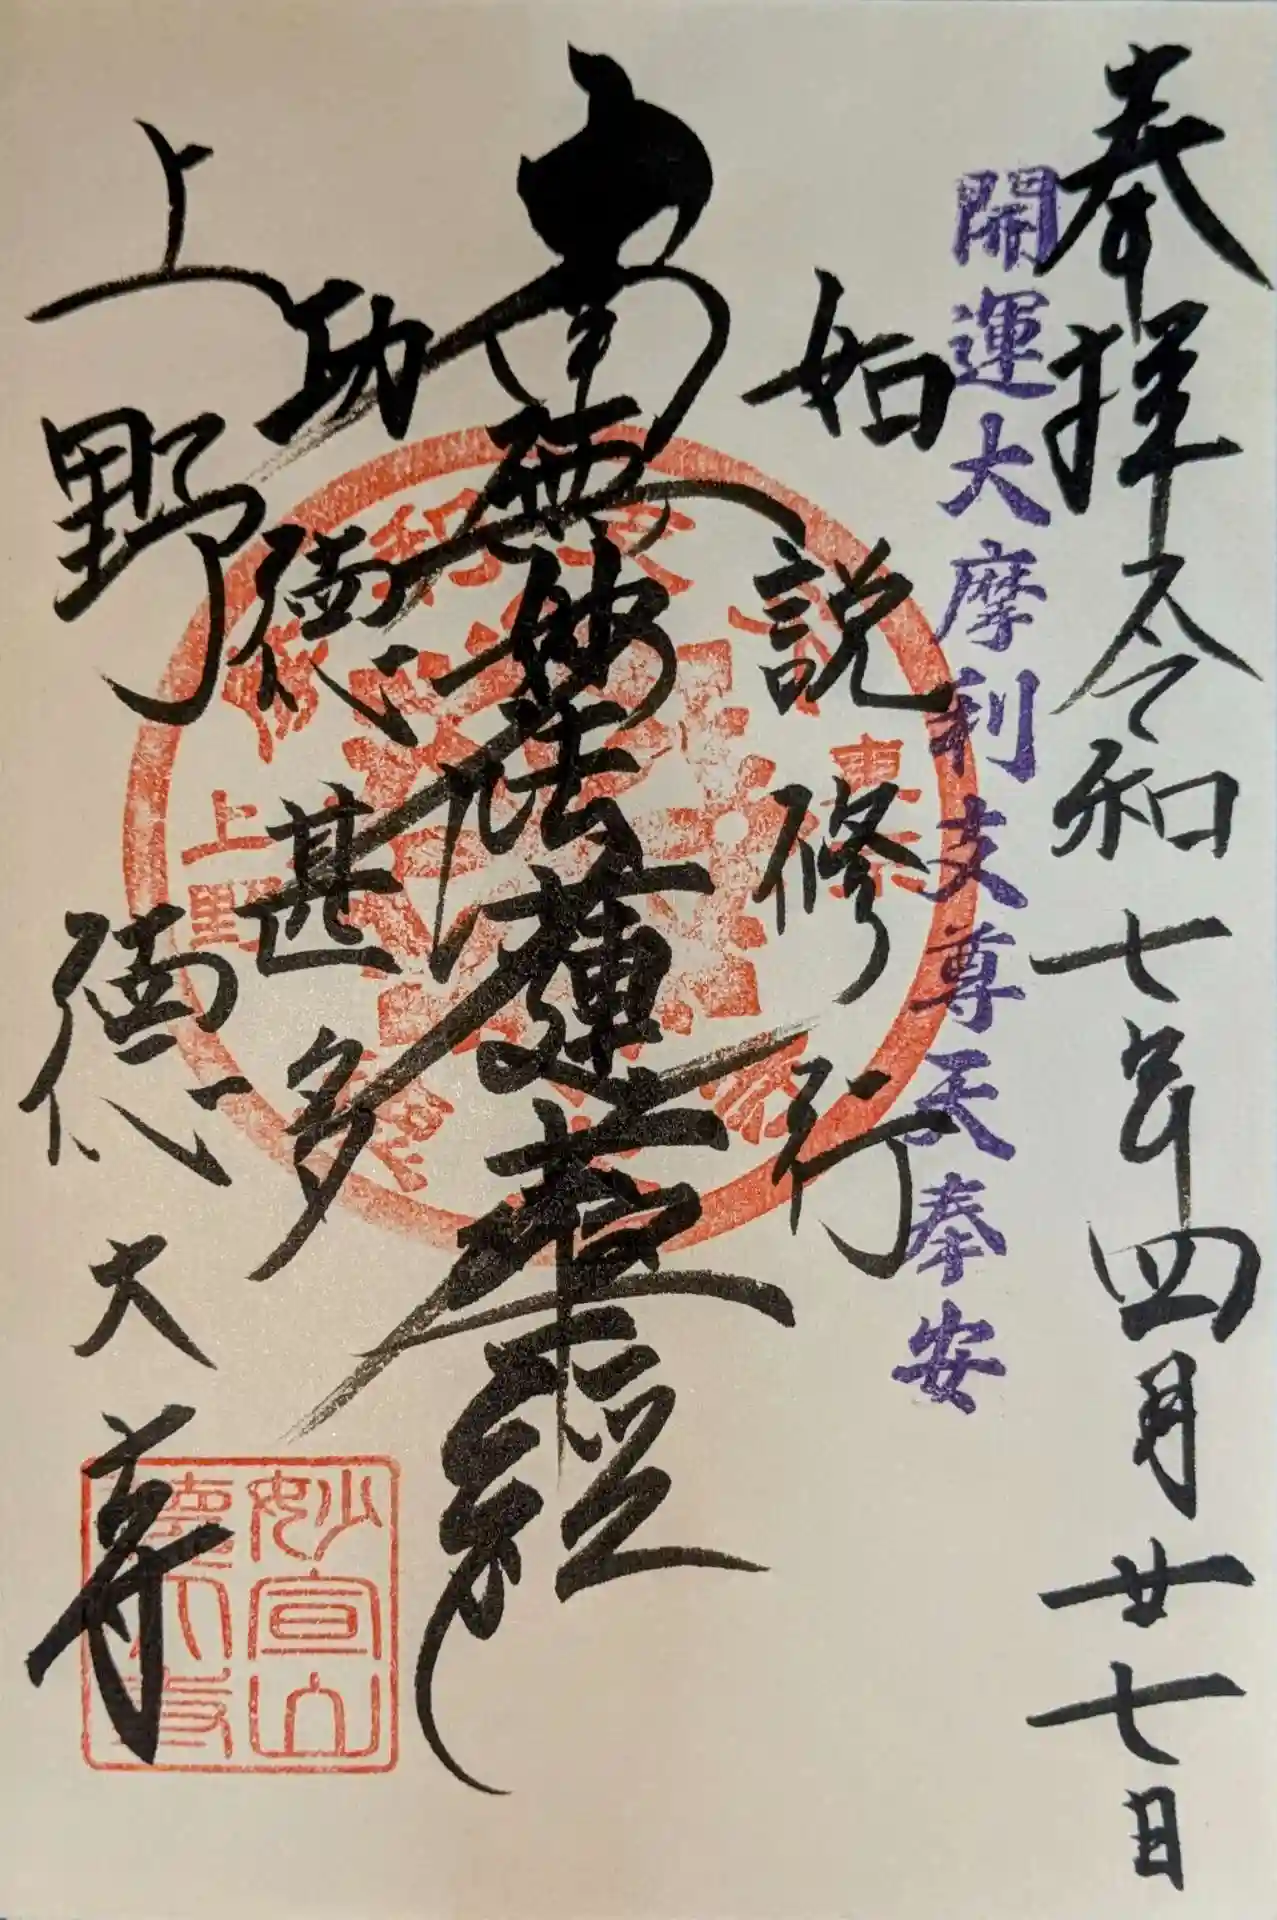 奉拝令和七年四月廿七日
開運大摩利支尊天奉安
如説修行
南無妙法蓮華経
功徳甚多
上野徳大寺
東京
上野
妙宣山
徳大寺